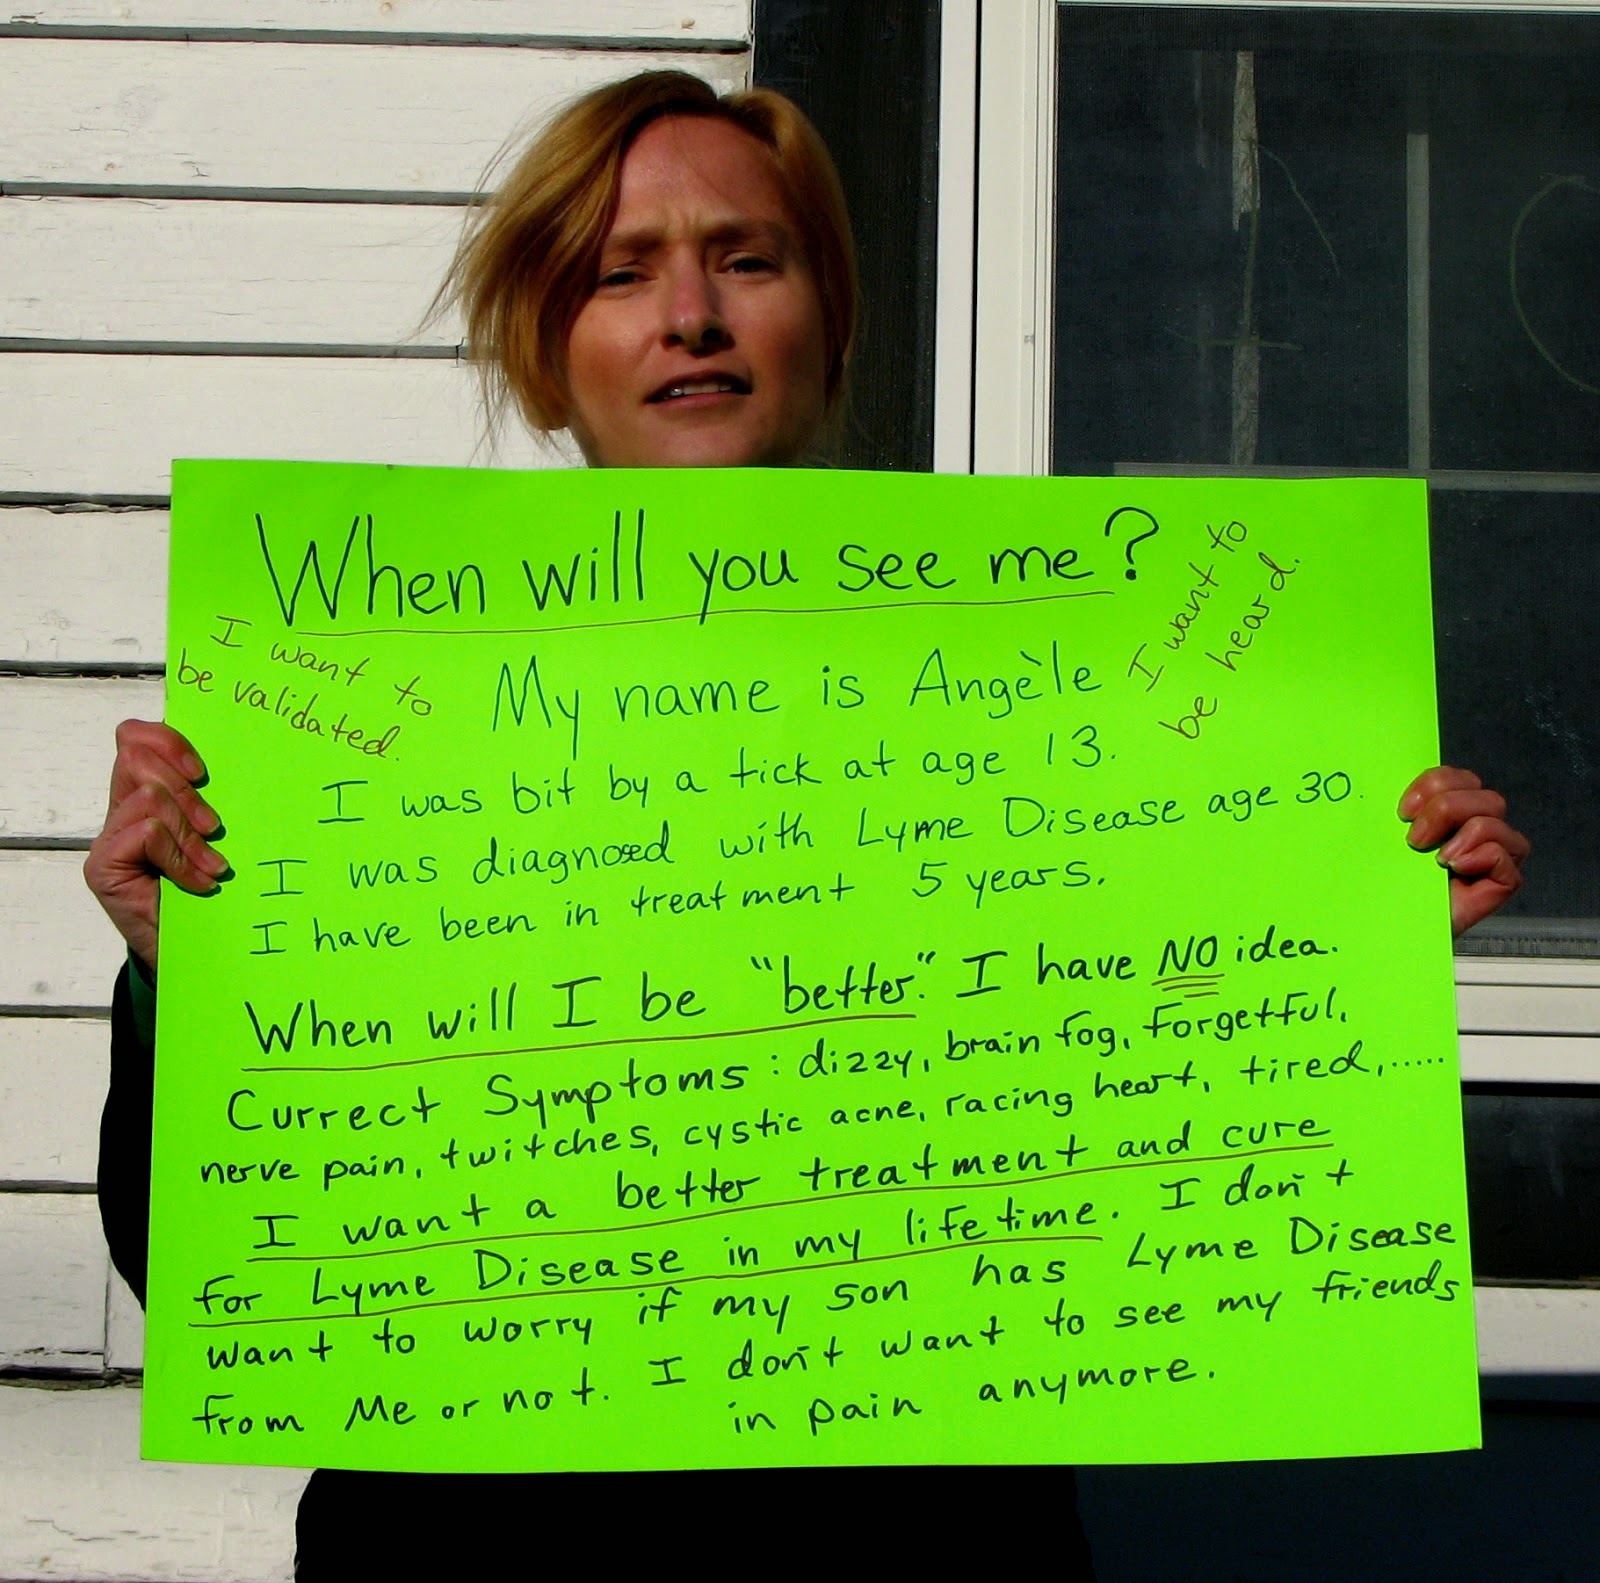 When will you see me?
I want to
be validated.
I want to
be heard.
My name is Angèle
I was bit by a tick at age 13.
I was diagnosed with Lyme Disease age 30.
I have been in treatment 5 years.
When will I be "better." I have NO idea.
Currect Symptoms: dizzy, brain fog, forgetful,
nerve pain, twitches, cystic acne, racing heart, tired,......
I want a better treatment and cure
for Lyme Disease in my lifetime. I don't
want to worry if my son has Lyme Disease
from Me or not. I don't want to see my friends
in pain anymore.